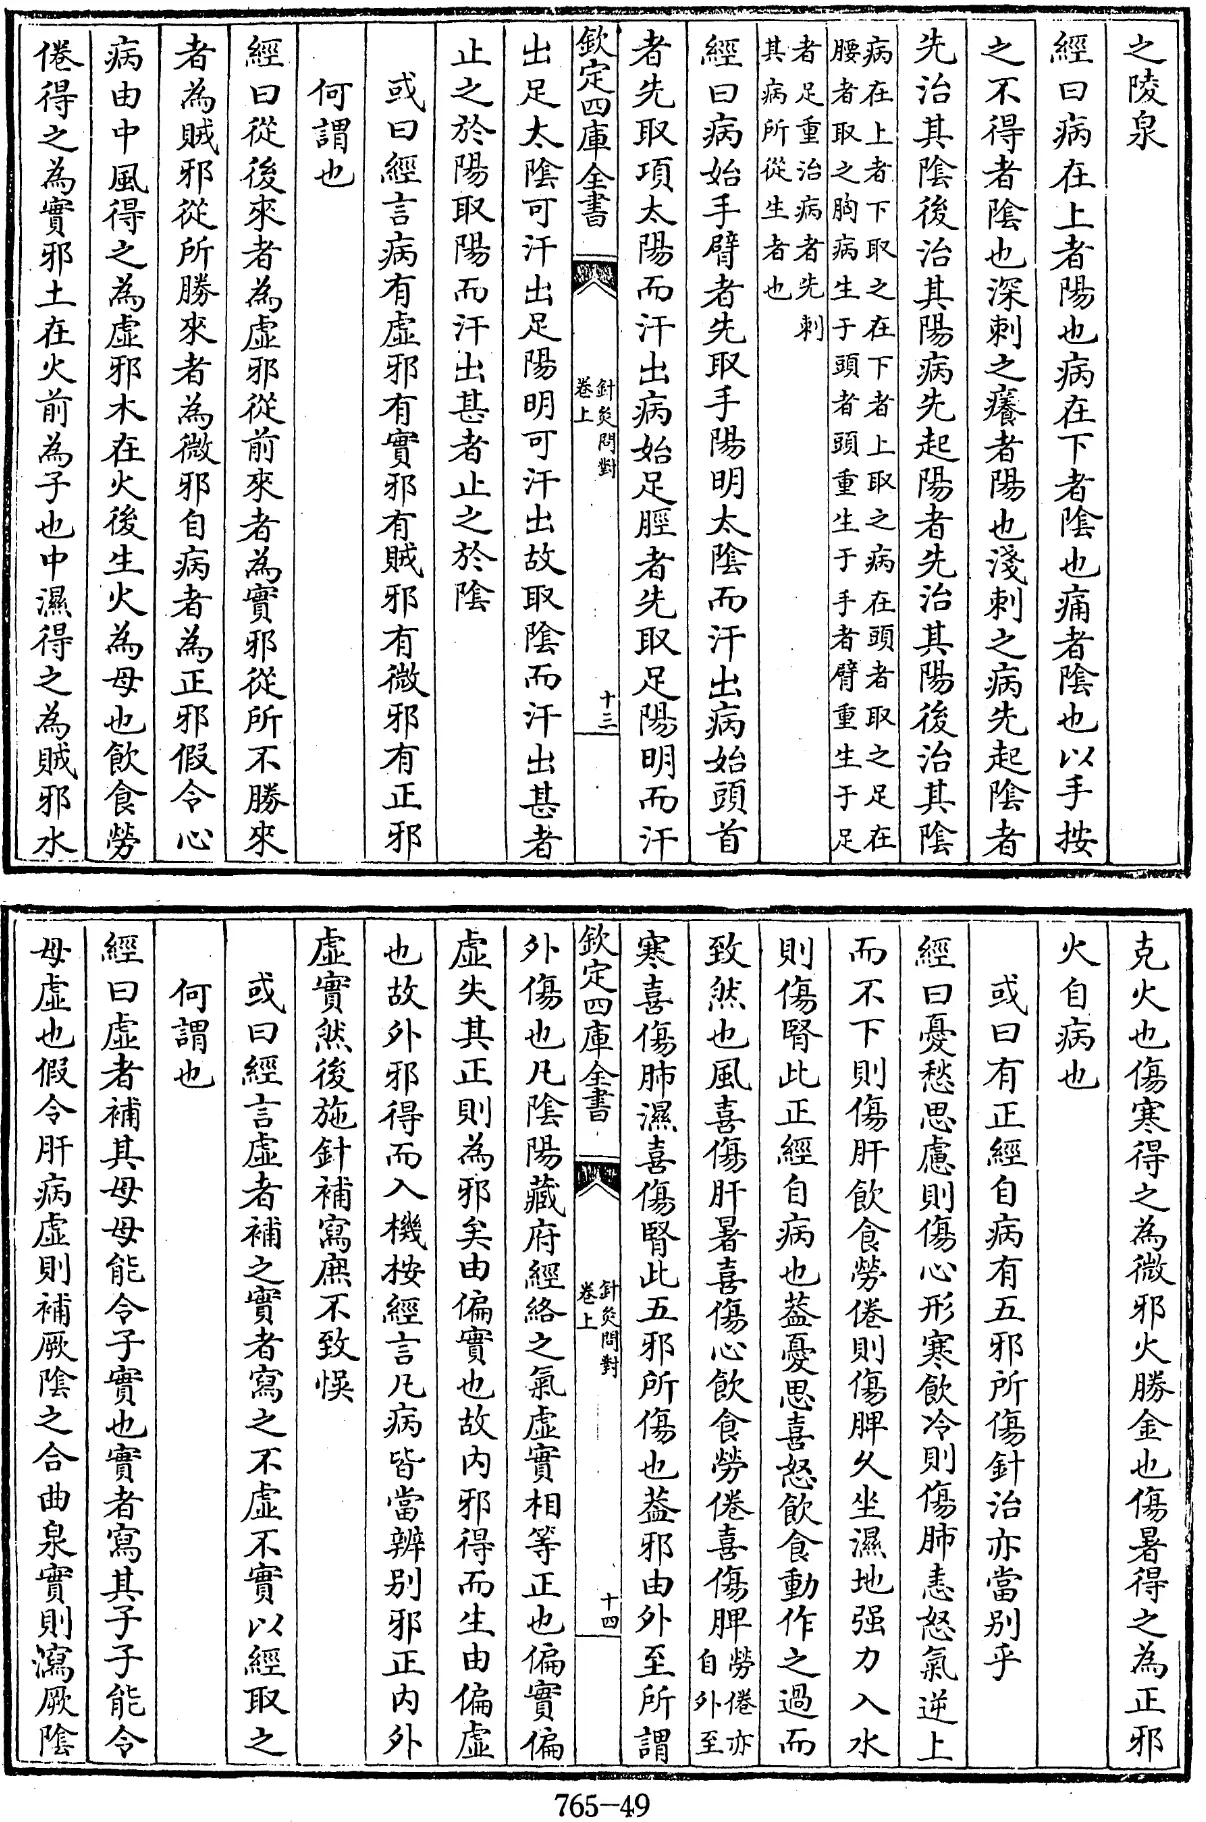 之陵泉
經曰病在上者陽也病在下者陰也痛者陰也以手按
之不得者陰也深刺之癢者陽也淺刺之病先起陰者
先治其陰後治其陽病先起陽者先治其陽後治其陰
病在上者下取之在下者上取之病在頭者取之足在
腰者取之膕病生于頭者頭重生于手者臂重生于足
者足重治病者先刺
其病所從生者也
經曰病始手臂者先取手陽明太陰而汗出病始頭首
者先取項太陽而汗出病始足脛者先取足陽明而汗
欽定四庫全書
針灸問對
卷上
十三
出足太陰可汗出足陽明可汗出故取陰而汗出甚者
止之於陽取陽而汗出甚者止之於陰
或曰經言病有虛邪有實邪有賊邪有微邪有正邪
何謂也
經曰從後來者為虛邪從前來者為實邪從所不勝來
者為賊邪從所勝來者為微邪自病者為正邪假令心
病由中風得之為虛邪木在火後生火為母也飲食勞
倦得之為實邪土在火前為子也中濕得之為賊邪水
克火也傷寒得之為微邪火勝金也傷暑得之為正邪
火自病也
或曰有正經自病有五邪所傷針治亦當别乎
經曰憂愁思慮則傷心形寒飲冷則傷肺恚怒氣逆上
而不下則傷肝飲食勞倦則傷脾久坐濕地强力入水
則傷腎此正經自病也葢憂思喜怒飲食動作之過而
致然也風喜傷肝暑喜傷心飲食勞倦喜傷脾勞倦亦
自外至
寒喜傷肺濕喜傷腎此五邪所傷也葢邪由外至所謂
欽定四庫全書
針灸問對
卷上
十四
外傷也凡陰陽藏府經絡之氣虛實相等正也偏實偏
虛失其正則為邪矣由偏實也故内邪得而生由偏虛
也故外邪得而入機按經言凡病皆當辨别邪正内外
虛實然後施針補寫庶不致悞
或曰經言虛者補之實者寫之不虛不實以經取之
何謂也
經曰虛者補其母母能令子實也實者寫其子子能令
母虛也假令肝病虛則補厥陰之合曲泉實則瀉厥陰
765-49